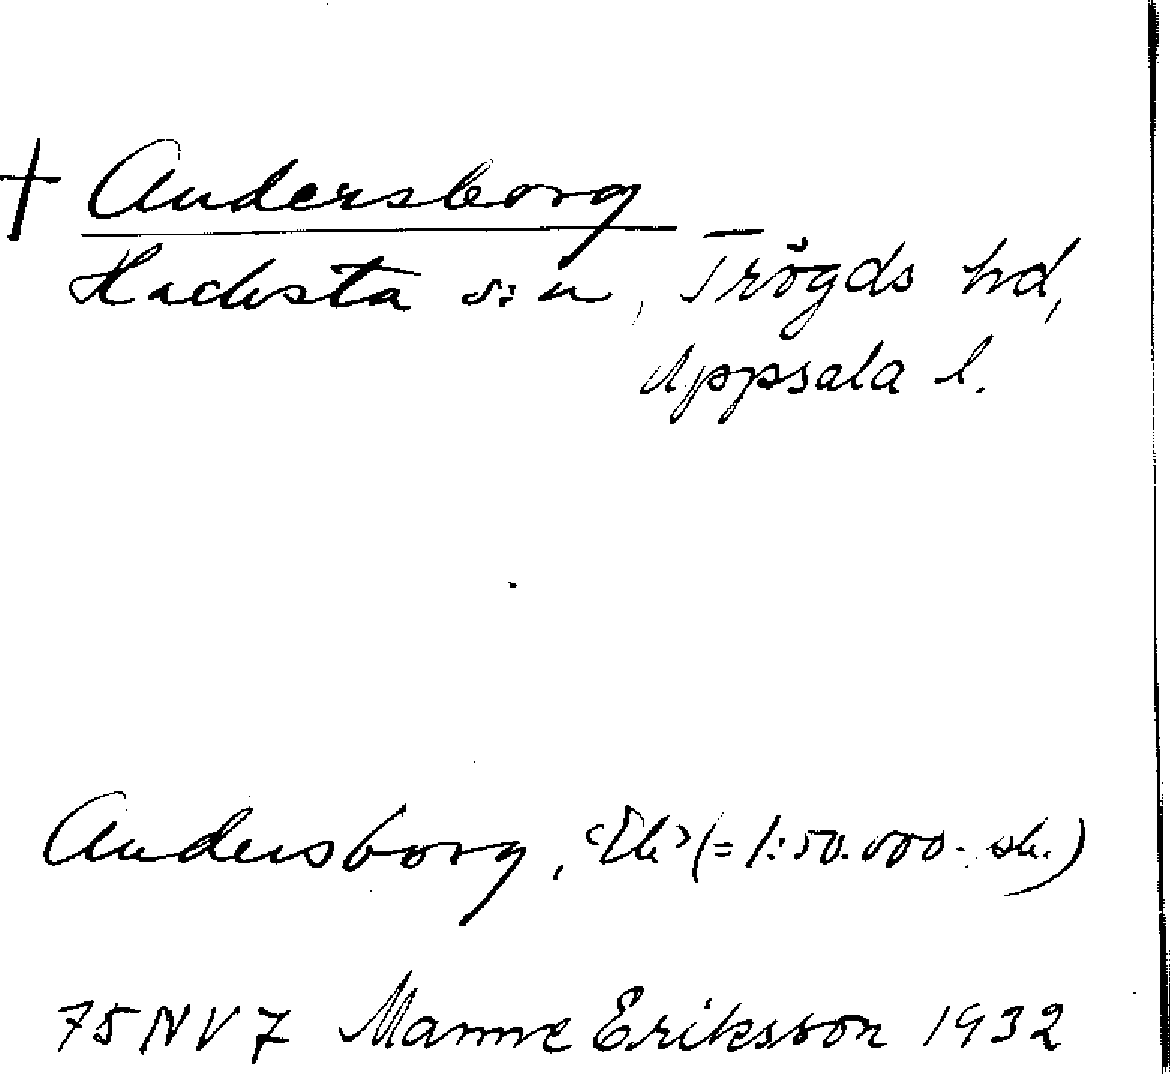 † Andersborg
Hacksta s:n, Trögds hd,
Uppsala l.
Andersborg, <Ek>(= 1:50.000-sk.)
75NV7 Manne Eriksson 1932